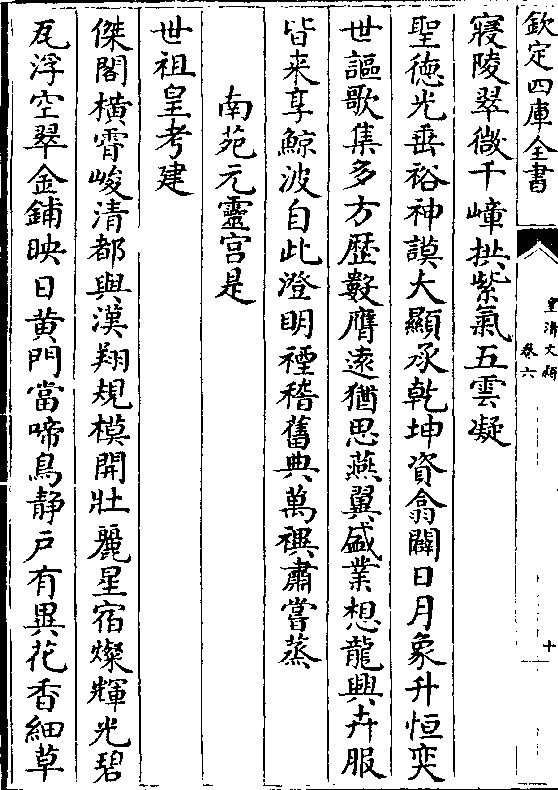 欽定四庫全書
皇清文穎
卷六
十
寢陵翠微千嶂拱紫氣五雲凝
聖德光垂裕神謨大顯承乾坤資翕闢日月象升恒奕
世謳歌集多方歴數膺逺猶思燕翼盛業想龍興卉服
皆来享鯨波自此澄明禋稽舊典萬禩肅嘗蒸
南苑元靈宫是
世祖皇考建
傑閣橫霄峻清都與漢翔規模開壯麗星宿燦輝光碧
瓦浮空翠金鋪映日黄門當啼鳥静戶有異花香細草